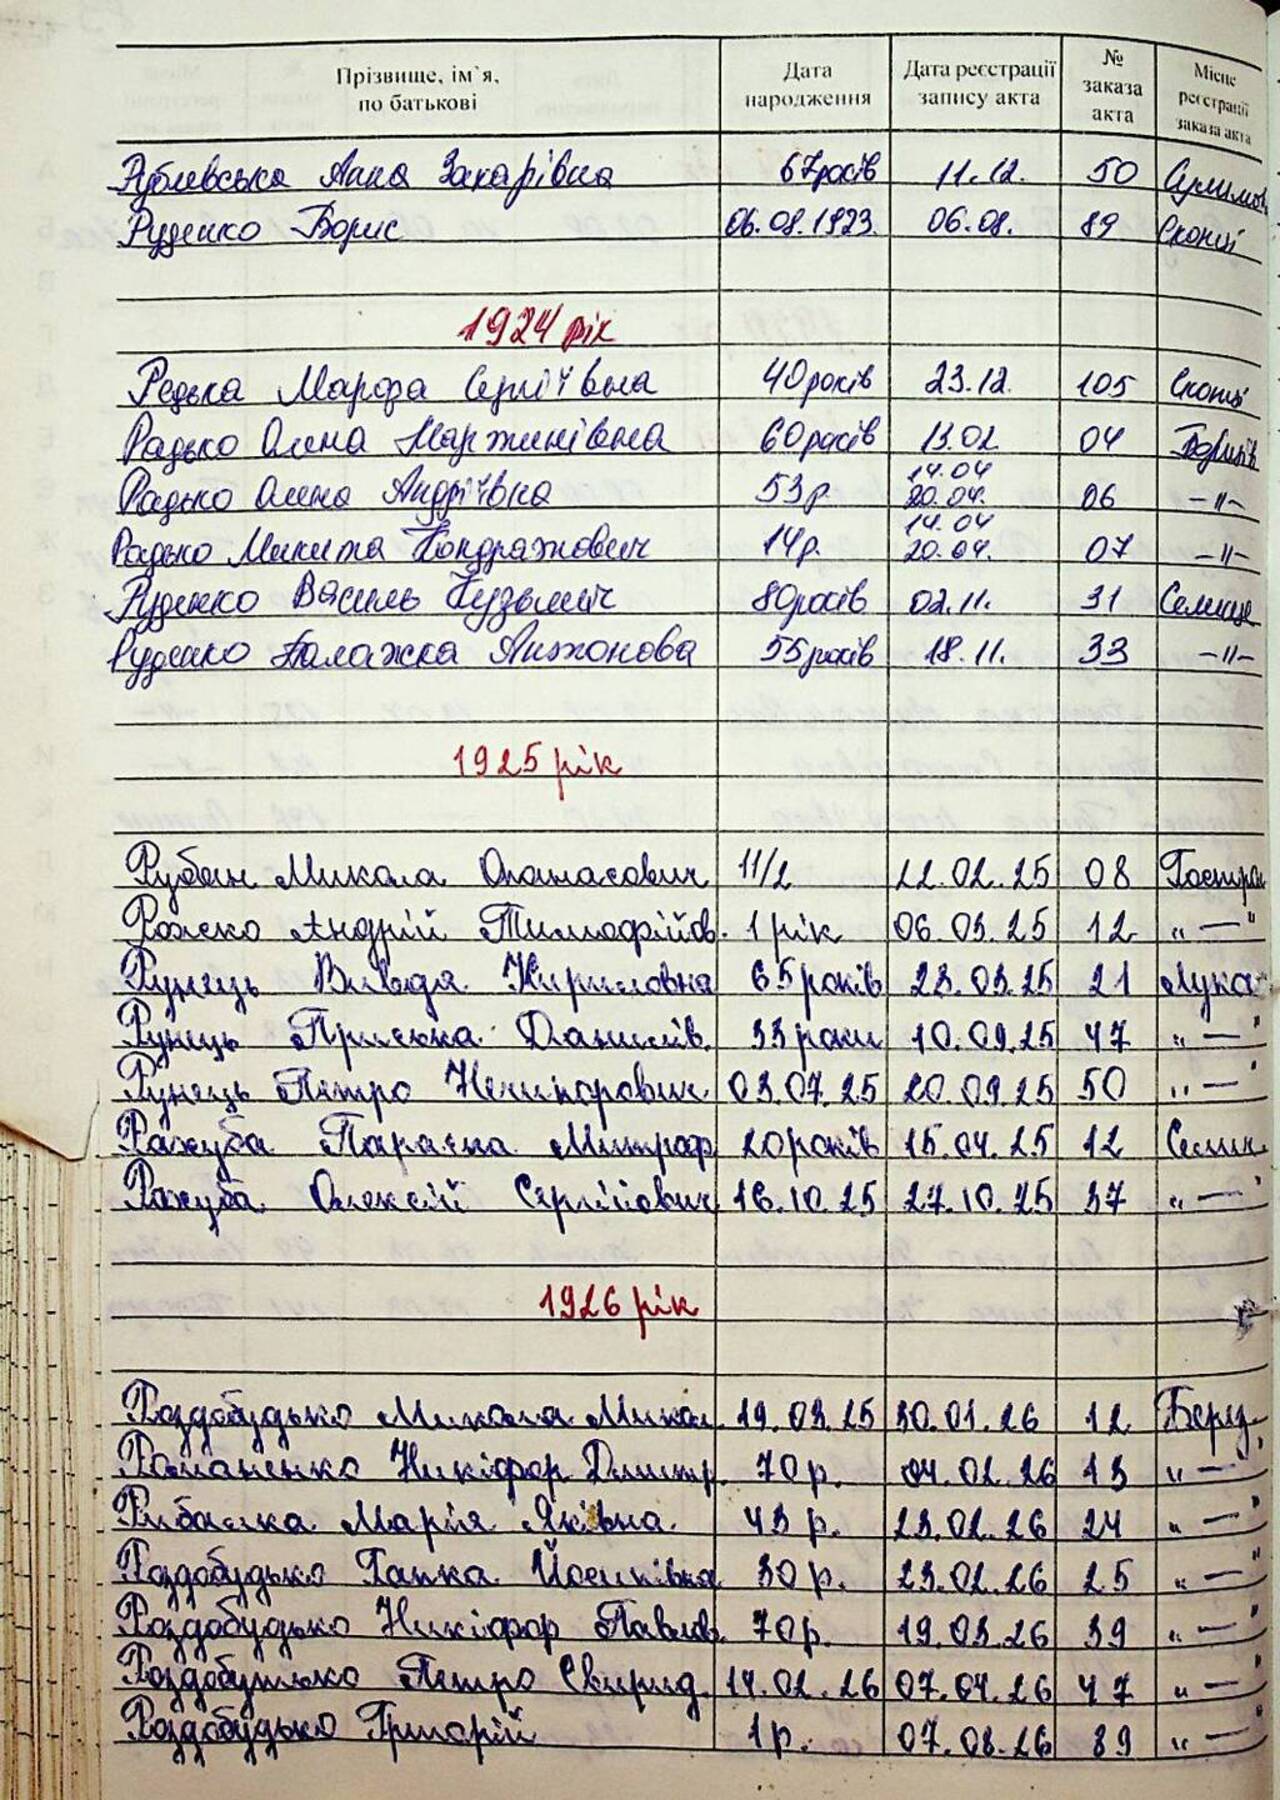 Прізвище, ім`я, по батькові Дата народження Дата реєстрації запису акта № заказа акта Місце реєстрації заказа акта
Рублевська Анна Захарівна 67років 11.12. 50 Сулимов
Руденко Борис 06.08.1923. 06.08. 89 Сконці
1924 рік
Редька Марфа Сергіївна 40років 23.12. 105 Сконці
Радько Олена Мартинівна 60років 13.02 04
Радько Олена Андріївна 53р. 14.04 20.04. 06 -"-
Радько Микита Кондратович 14р. 14.04 20.04. 07 -"-
Руденко Василь Кузьмич 80років 02.11. 31 Селище
Руденко Палажка Антонова 55років 18.11. 33 -"-
1925 рік
Рубан Микола Опанасович 11/2 22.02.25 08 Гостро
Рожко Андрій Тимофійов. 1 рік 06.03.25 12 "—"
Рунець Кириловна 65років 23.03.25 21 Лука
Рунець Приська Данилів. 33 роки 10.09.25 47 "—"
Рунець Петро Нечипорович. 03.07.25 20.09.25 50 "—"
Рахуба Параска Митроф 20років 15.04.25 12 Селищ.
Рахуба Олексій Сергійович 16.10.25 27.10.25 37 "—"
1926 рік
Роздобудько Микола Микол. 19.03.25 30.01.26 12 Берез.
Романенко Никіфор Дмитр. 70р. 04.02.26 13 "—"
Рибалка Марія Яківна. 43 р. 23.02.26 24 "—"
Роздобудько Гапка Йосипівна 30 р. 23.02.26 25 "—"
Роздобудько Никіфор Павлов. 70р. 19.03.26 39 "—"
Роздобутько Петро Свирид. 14.02.26 07.04.26 47 "—"
Роздобудько Григорій 1р. 07.08.26 89 "—"